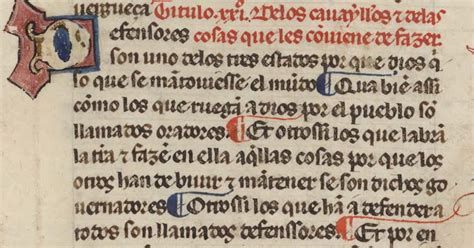 uergueça Titulo .xxi. Delos cauayllos ⁊ delas
Defensores cosas que les cōuiene de fazer
son uno delos tres estados por que dios q̄
lo que se mātouiesse el mūdo ¶ Qua biē assi
cōmo los que ruegā a dios por el pueblo sō
llamados oradores. ¶ Et otrossi los que labrā
la tīra ⁊ fazē en ella aq̄llas cosas por que los
otros han de biuir ⁊ mātener se son dichos go
uernadores ¶ Otrossi los que hā a defender a
todos son llamados defenssores ¶ Et por en